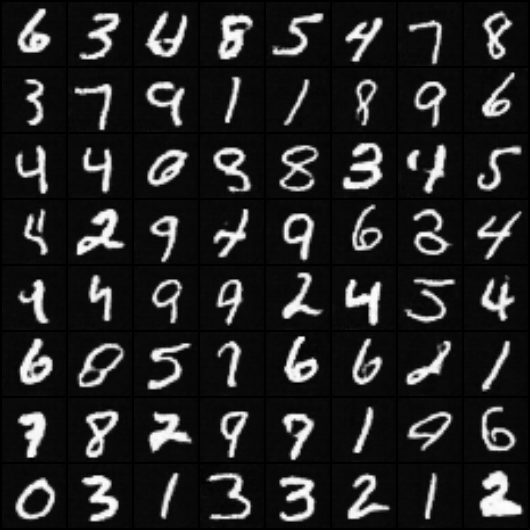 6 3 6 8 5 4 7 8
3 7 9 1 1 8 9 6
4 4 0 8 8 3 4 5
4 2 9 9 6 2 4
9 4 9 9 2 4 5 4
6 8 5 7 6 6 2 1
7 8 2 9 7 1 9 6
0 3 1 3 3 2 1 2